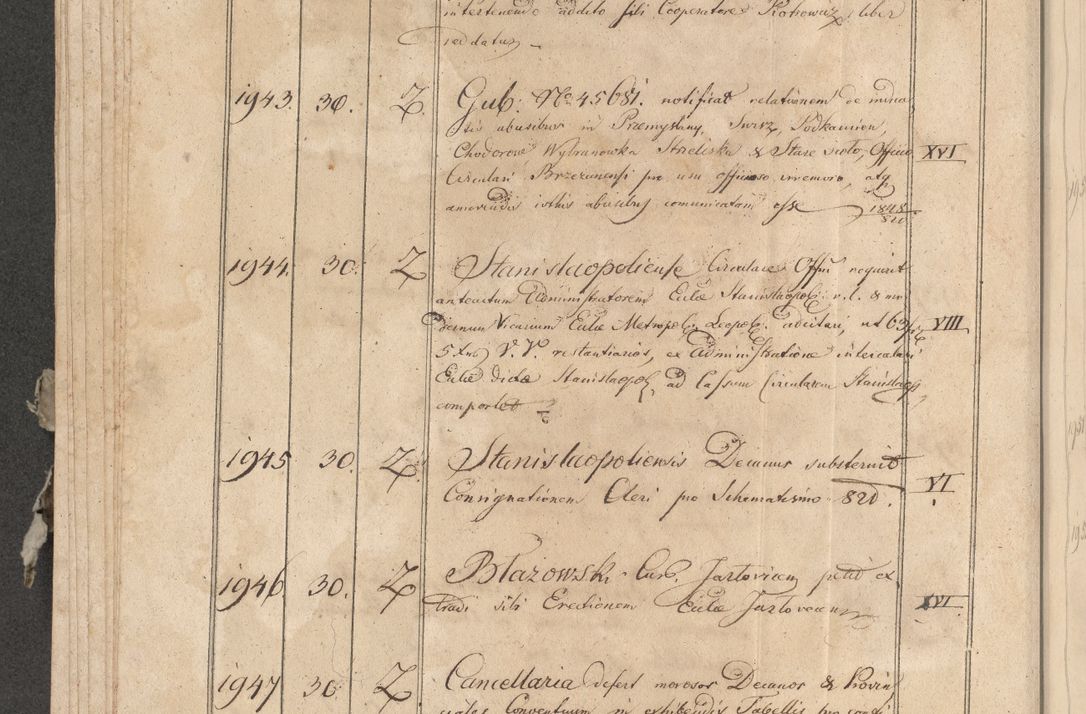 intertenendo addito sibi Cooperatore Kotrowaz, liber
reddatur
1943. 30. Z. Gub: No 45681. notificat relationem de mina
tis abusibus in Przemyslany, Swirz, Podkamien,
Chodorow Wybranowka Strzeliska & Stare siolo, Officio XVI
Circulari Brzezanensi pro usu officioso, atq
amovendis istius abusibus comunicatam esse 1848/820
1944. 30. Z Stanislaopoliense Circulare Offm requirit
anteactum Administratorem Eclae Stanislaopol: r. l. & mo
dernum Vicarium Eclae Metropol. Leopol. adcitari, ut 63 VIII
5 Xrus V. V. restantiarios, ex administratione intercalari
Eclae dictae Stanislaopol, ad Cassam Circularem Stanislaop
comportet
1945 30. Z. Stanislaopoliensis Decanus substernit
Consignationem Cleri pro Schematismo 820. VI
1946 30. Z Błazowski Cur. Jazlovicen petit ex
tradi sibi Erectionem Eclae Jazlovecen XVI
1947 30 Z Cancellaria defert morosos Decanos & Provin
ciales Conventuum in exhibendis Tabellis pro